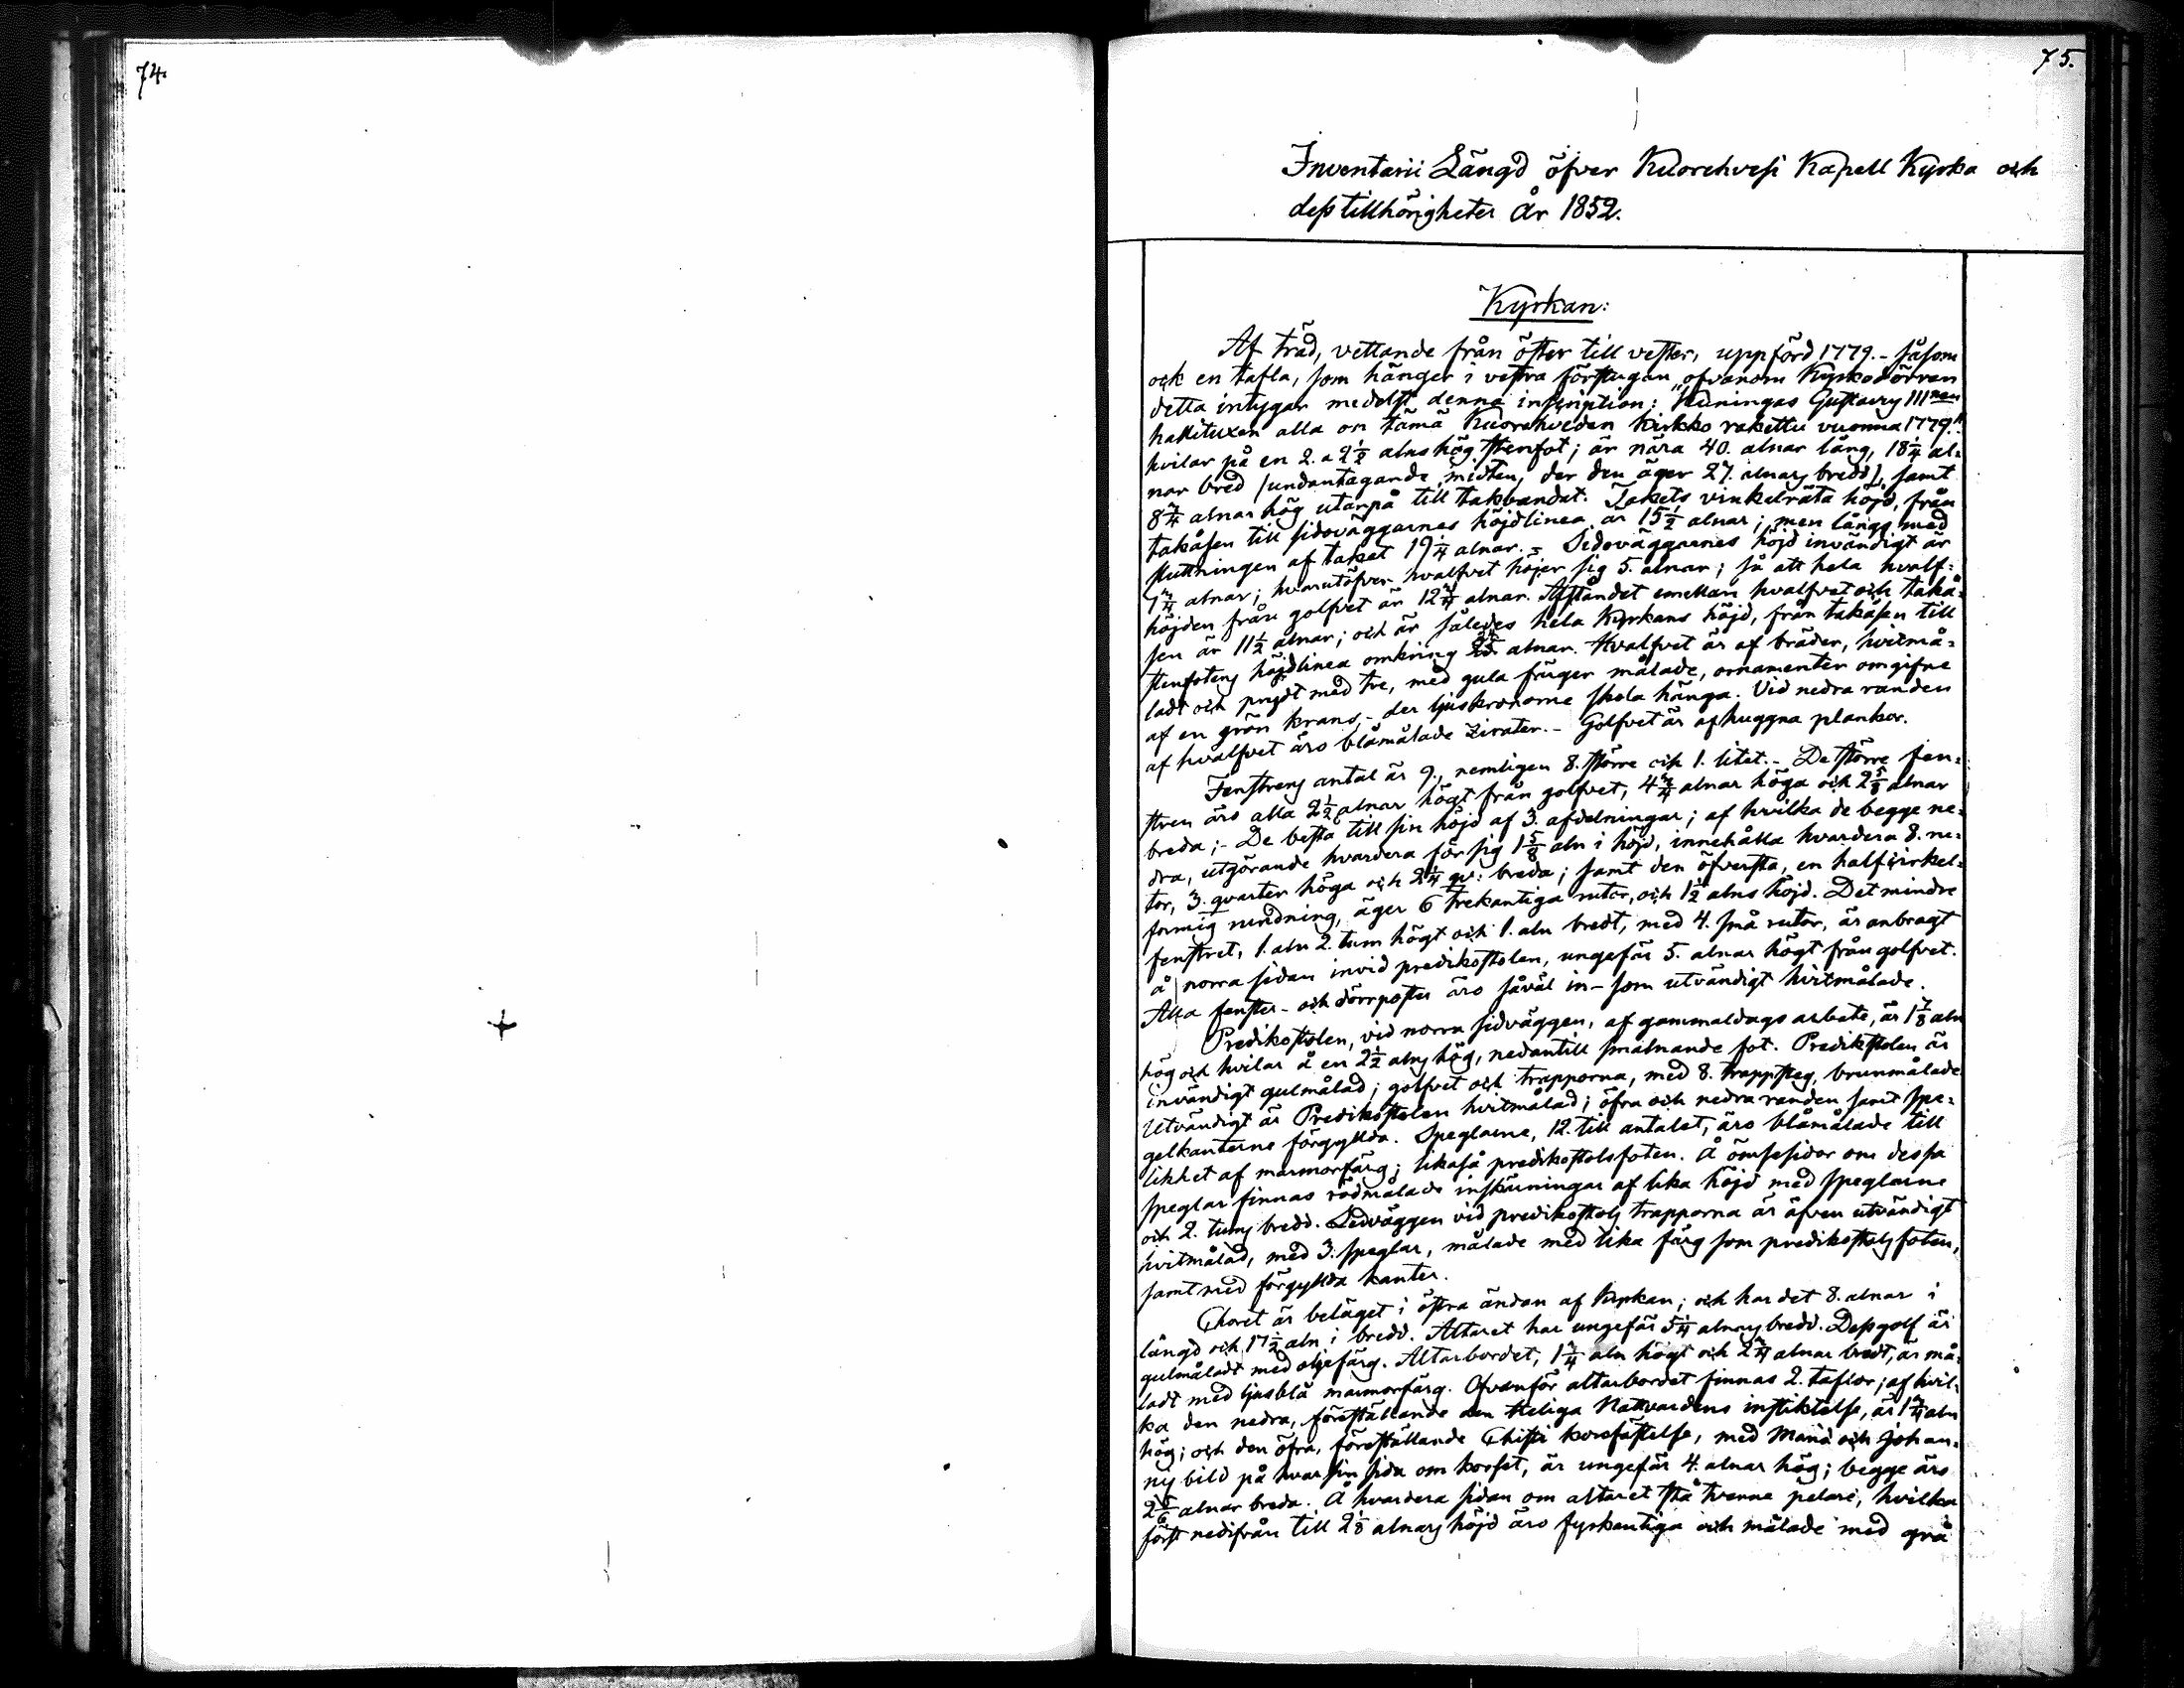 74.
75.
Inventarii Längd öfver Kuorehvesi Kapell Kyrka och
dess tillhörigheter År 1852.
Kyrkan:
Af träd, vettande från öster till vester, uppförd 1779. - såsom
ock en tafla, som hänger i vestra förstugan „ofvanom Kyrkodörren
detta intygar medelst denna inscription: Kuningas Gustavy IIInen
hallituxen alla on tämä Kuorehveden Kirkko rakettu vuonna 1779."
hvilar på en 2. a 2½ alns hög stenfot; är nära 40. alnar lång, 18¼ al=
nar bred /undantagande midten, der den äger 27. alnars bredd/, samt
8¾ alnar hög utanpå till takbandet. Takets vinkelräta höjd, från
takåsen till sidoväggarnes höjdlinea är 15½ alnar; men längs med
sluttningen af taket 19¼ alnar. = Sidoväggarnes höjd invändigt är
7¾ alnar; hvarutöfver hvalfvet höjer sig 5. alnar; så att hela hvalf=
höjden från golfvet är 12¾ alnar. Afståndet emellan hvalfvet och takå=
sen är 11½ alnar; och är således hela Kyrkans höjd, från takåsen till
stenfotens höjdlinea omkring alnar. Hvalfvet är af bräder, hvitmå=
ladt och prydt med tre, med gula färger målade, ornamenter omgifne
af en grön krans, - der ljuskronorne skola hänga. Vid nedra randen
af hvalfvet äro blåmålade Zirater. - Golfvet är af huggna plankor.
Fenstrens antal är 9., nemligen 8. större och 1. litet. - De större fen=
stren äro alla 2½ alnar högt från golfvet, 4¾ alnar höga och 2⅝ alnar
breda; - De bestå till sin höjd af 3. afdelningar; af hvilka de begge ne=
dra, utgörande hvardera för sig 1⅝ aln i höjd, innehålla hvardera 8. ru=
tor, 3. qvarter höga och 2¼ qv: breda; samt den öfversta, en halfcirkel=
formig rundning, äger 6 trekantiga rutor, och 1½ alns höjd. Det mindre
fenstret, 1. aln 2. tum högt och 1. aln bredt, med 4. små rutor, är anbragt
å norra sidan invid predikostolen, ungefär 5. alnar högt från golfvet.
Alla fenster- och dörrposter äro såväl in- som utvändigt hvitmålade.
Predikostolen, vid norra sidväggen, af gammaldags arbete, är 1⅞ aln
hög och hvilar å en 2½ alns hög, nedantill smalnande fot. Predikstolen är
invändigt gulmålad; golfvet och trapporna, med 8. trappsteg, brunmålade.
Utvändigt är Predikostolen hvitmålad; öfra och nedra randen samt spe=
gelkanterne förgyllda. Speglarne, 12. till antalet, äro blåmålade till
likhet af marmorfärg; likaså predikostolsfoten. Å ömsesidor om dessa
speglar finnas rödmålade inskärningar af lika höjd med speglarne
och 2. tums bredd. Sidväggen vid predikostols trapporna är äfven utvändigt
hvitmålad, med 3. speglar, målade med lika färg som predikostols foten,
samt med förgyllda kanter.
Choret är beläget i östra ändan af Kyrkan; och har det 8. alnar i
längd och 17½ aln i bredd. Altaret har ungefär 5¼ alnars bredd. Dess golf är
gulmåladt med oljefärg. Altarbordet, 1¾ aln högt och 2¾ alnar bredt, är må=
ladt med ljusblå marmorfärg. Ofvanför altarbordet finnas 2. taflor; af hvil=
ka den nedra, föreställande den Heliga Nattvardens instiktelse, är 1¾ aln
hög; och den öfra, föreställande Christi korsfästelse, med Mariæ och Johan=
nis bild på hvar sin sida om korset, är ungefär 4. alnar hög; begge äro
2⅚ alnar breda. Å hvardera sidan om altaret stå tvenne pelare, hvilka
först nedifrån till 2⅛ alnars höjd äro fyrkantiga och målade med grå